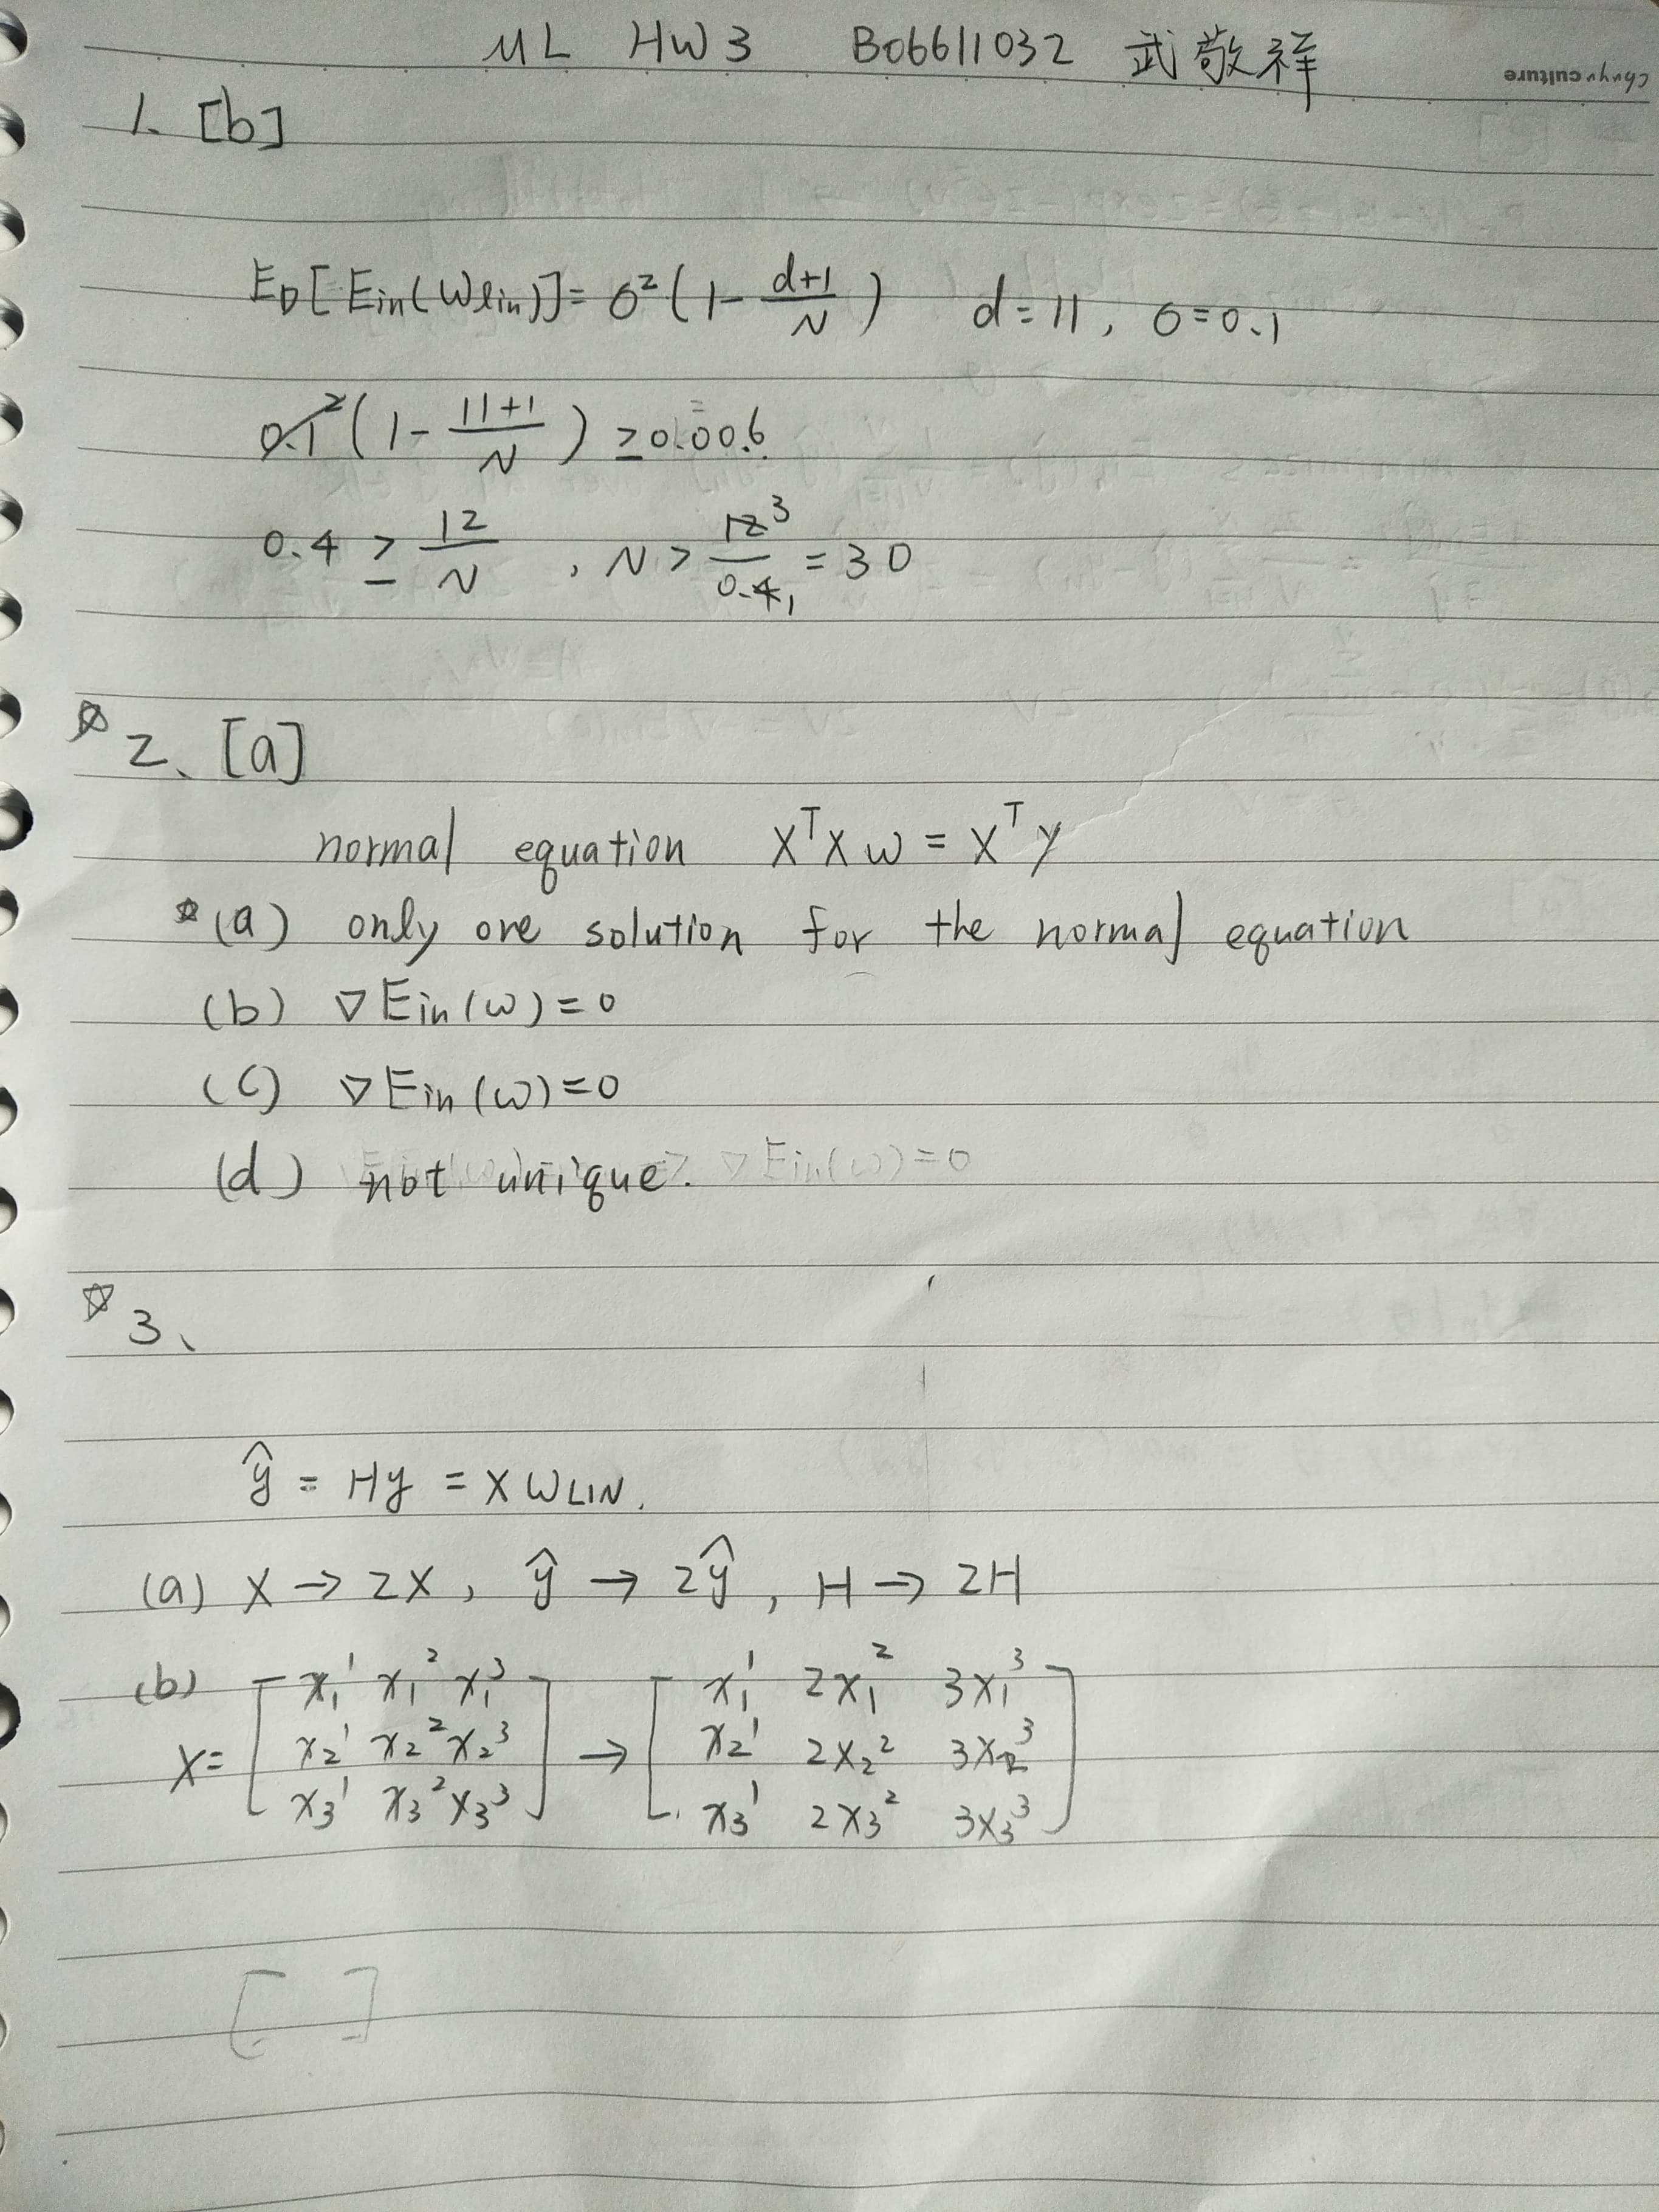 ML HW3 B06611032 武敬祥
culture
1. [b]
E_D[Ein(Wlin)] = σ²(1 - (d+1)/N)  d = 11, σ = 0.1
0.1²(1 - (11+1)/N) ≥ 0.006
0.4 ≥ 12/N , N > 12³/0.4₁ = 30
☆ 2、 [a]
normal equation XᵀXw = Xᵀy
☆(a) only one solution for the normal equation
(b) ∇Ein(w) = 0
(c) ∇Ein(w) = 0
(d) not unique. ∇Ein(w) = 0
☆ 3、
ŷ = Hy = X W_LIN.
(a) X → 2X, ŷ → 2ŷ, H → 2H
(b)
X = [x₁¹ x₁² x₁³ → [x₁¹ 2x₁² 3x₁³
x₂¹ x₂² x₂³ x₂¹ 2x₂² 3x₂³
x₃¹ x₃² x₃³] x₃¹ 2x₃² 3x₃³]
[ ]